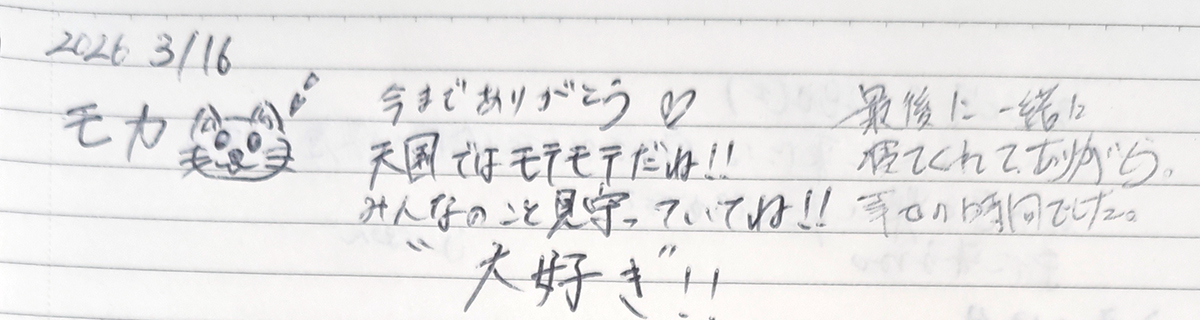 2026 3/16
モカ
今までありがとう♡
天国ではモテモテだね!!
みんなのこと見守っていてね!!
"大好き"!!
最後に一緒に
寝てくれてありがとう。
幸せの時間でした。